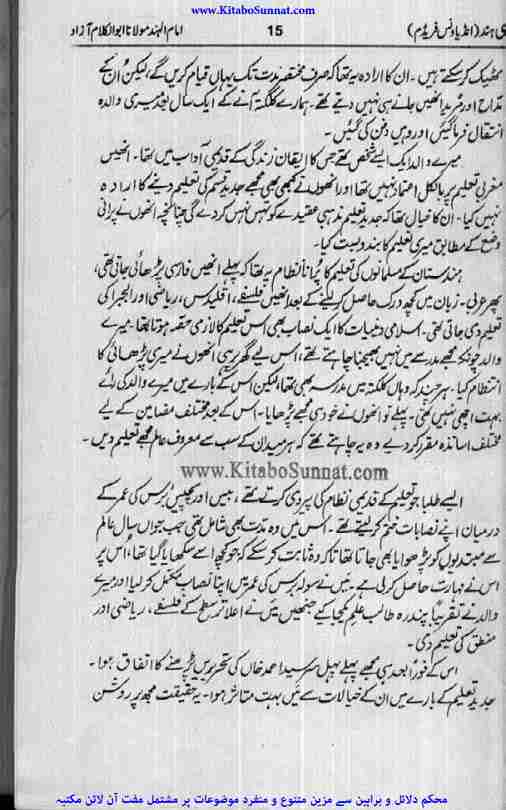 www.KitaboSunnat.com
ی ہند (انڈیا ونس فریڈم) 15 امام الہند مولانا ابوالکلام آزاد
ٹھیک کر سکتے ہیں۔ ان کا ارادہ یہ تھا کہ صرف مختصر مدت تک یہاں قیام کریں گے، لیکن ان کے
مداح اور مُرید انھیں جانے ہی نہیں دیتے تھے۔ ہمارے کلکتہ آنے کے ایک سال بعد میری والدہ
انتقال فرما گئیں اور وہیں دفن کی گئیں۔
میرے والد ایک ایسے شخص تھے جن کا ایقان زندگی کے قدیمی آداب میں تھا۔ انھیں
مغربی تعلیم پر بالکل اعتماد نہیں تھا اور انھوں نے کبھی بھی مجھے جدید قسم کی تعلیم دینے کا ارادہ
نہیں کیا۔ ان کا خیال تھا کہ جدید تعلیم مذہبی عقیدے کو تہس نہس کر دے گی چنانچہ انھوں نے پرانی
وضع کے مطابق میری تعلیم کا بندوبست کیا۔
ہندستان کے مسلمانوں کی تعلیم کا پُرانا نظام یہ تھا کہ پہلے انھیں فارسی پڑھائی جاتی تھی،
پھر عربی۔ زبان میں کچھ درک حاصل کر لینے کے بعد انھیں فلسفے، اقلیدس، ریاضی اور الجبرا کی
تعلیم دی جاتی تھی۔ اسلامی دینیات کا ایک نصاب بھی اس تعلیم کا لازمی حصّہ ہوتا تھا۔ میرے
والد چونکہ مجھے مدرسے میں نہیں بھیجنا چاہتے تھے، اس لیے گھر ہی انھوں نے میری پڑھائی کا
انتظام کیا۔ ہر چند کہ وہاں کلکتہ میں مدرسہ بھی تھا، لیکن اس کے بارے میں میرے والد کی رائے
بہت اچھی نہیں تھی۔ پہلے تو انھوں نے خود ہی مجھے پڑھایا۔ اس کے بعد مختلف مضامین کے لیے
مختلف اساتذہ مقرر کر دیے وہ یہ چاہتے تھے کہ ہر میدان کے سب سے معروف عالم مجھے تعلیم دیں۔
www.KitaboSunnat.com
ایسے طلبا جو تعلیم کے قدیمی نظام کی پیروی کرتے تھے، بیس اور پچیس برس کی عمر کے
درمیان اپنے نصابات ختم کر لیتے تھے۔ اس میں وہ مدت بھی شامل تھی جب جواں سال عالم
سے مبتدیوں کو پڑھوایا بھی جاتا تھا تاکہ وہ ثابت کر سکے کہ جو کچھ اسے سکھایا گیا تھا، اُس پر
اس نے مہارت حاصل کر لی ہے۔ میں نے سولہ برس کی عمر میں اپنا نصاب مکمل کر لیا اور میرے
والد نے تقریباً پندرہ طالب علم یکجا کیے جنھیں میں نے اعلا تر سطح کے فلسفے، ریاضی اور
منطق کی تعلیم دی۔
اس کے فوراً بعد ہی مجھے پہلے پہل سر سید احمد خاں کی تحریریں پڑھنے کا اتفاق ہوا۔
جدید تعلیم کے بارے میں ان کے خیالات سے میں بہت متاثر ہوا۔ یہ حقیقت مجھ پر روشن
محکم دلائل و براہین سے مزین متنوع و منفرد موضوعات پر مشتمل مفت آن لائن مکتبہ